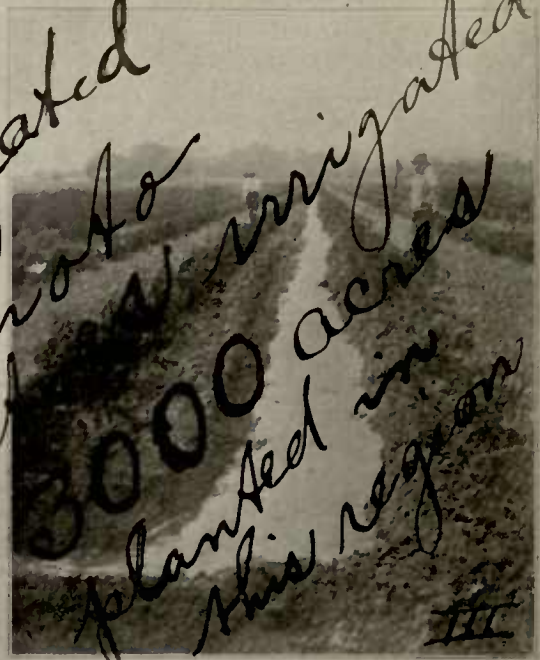 ated
irrigated
3000 acres
planted in
this region
III